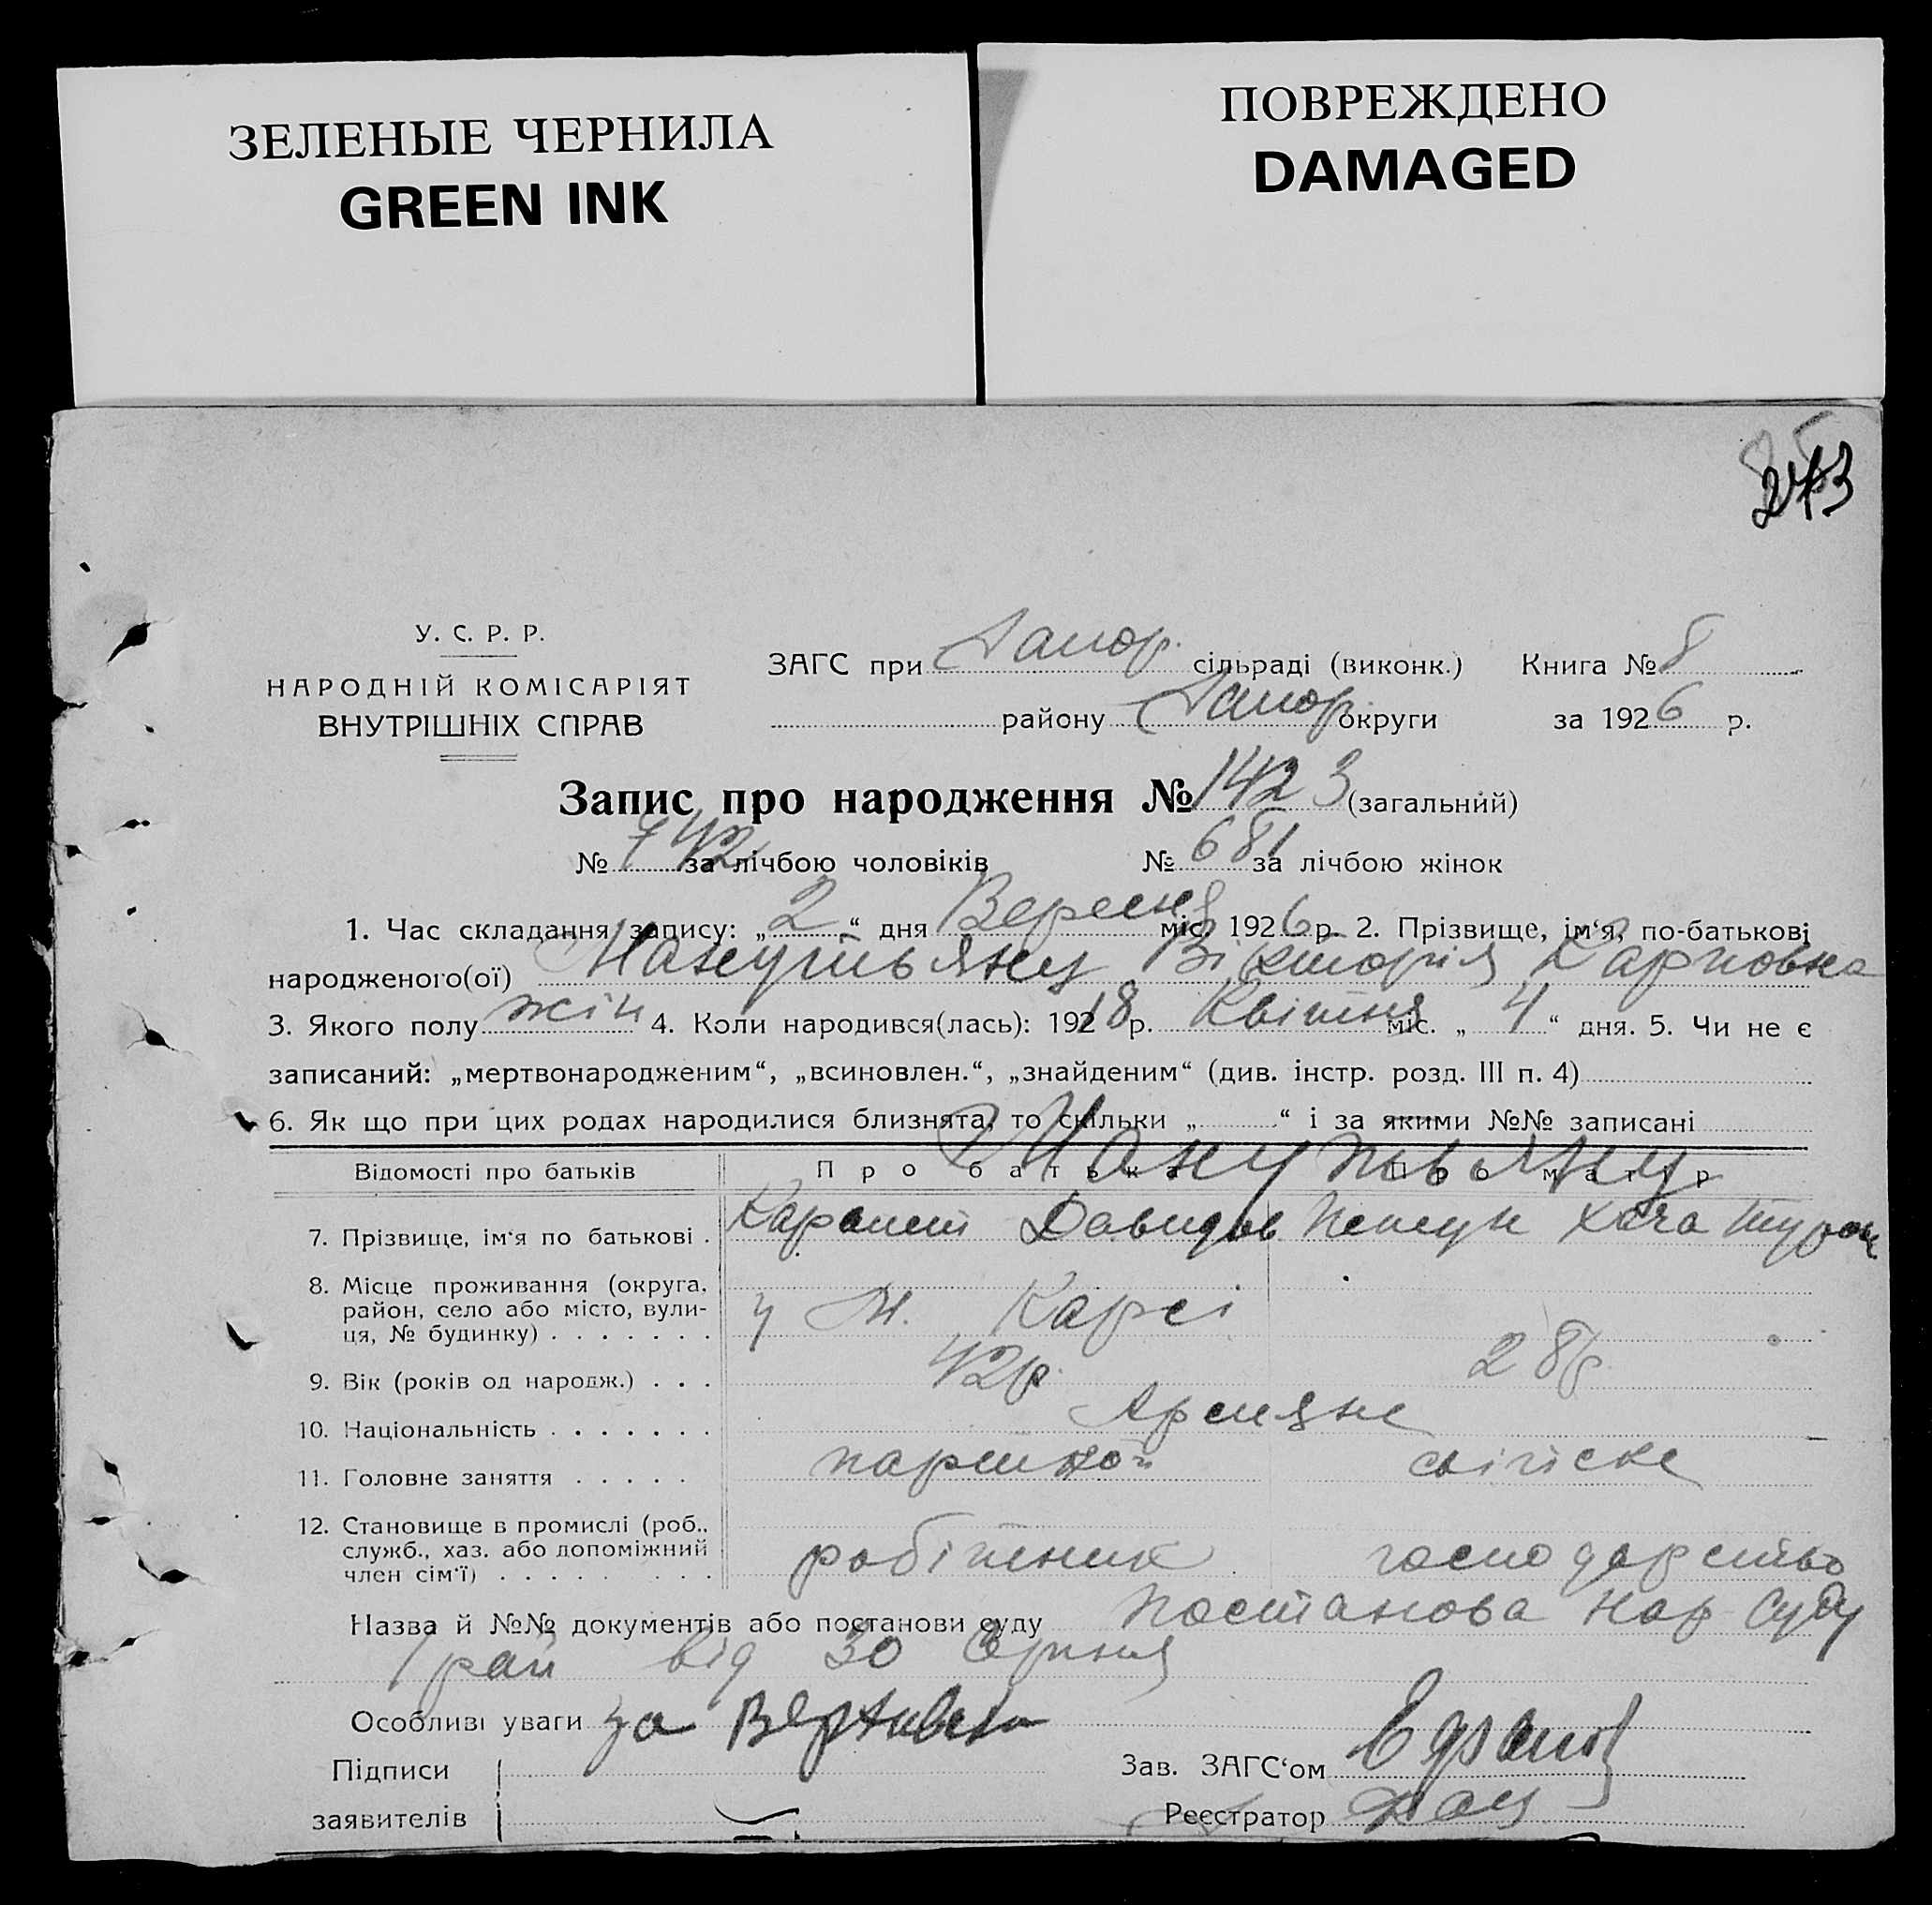 ЗЕЛЕНЫЕ ЧЕРНИЛА
GREEN INK
ПОВРЕЖДЕНО
DAMAGED
У. С. Р. Р.
НАРОДНІЙ КОМІСАРІЯТ
ВНУТРІШНІХ СПРАВ
ЗАГС при Запор. сільраді (виконк.) Книга № 8
району Запор. округи за 1926 р.
Запис про народження № 1423 (загальний)
№ 742 за лічбою чоловіків № 681 за лічбою жінок
1. Час складання запису: „2“ дня Вересня міс. 1926 р. 2. Прізвище, ім‘я, по-батькові
народженого(ої) Вікторія Карповна
3. Якого полу жін 4. Коли народився(лась): 19218 р. Квітня міс. „4“ дня. 5. Чи не є
записаний: „мертвонародженим“, „всиновлен.“, „знайденим“ (див. інстр. розд. III п. 4)
6. Як що при цих родах народилися близнята, то скільки „ “ і за якими №№ записані
Відомості про батьків Про батька Про матір
7. Прізвище, ім‘я по батькові . Карапет Давидов
8. Місце проживання (округа,
район, село або місто, вули-
ця, № будинку) . . . . . . . у м. Карсі
9. Вік (років од народж.) . . . 42р. 28р.
10. Національність . . . . . . . Армяне
11. Головне заняття . . . . .
12. Становище в промислі (роб.,
служб., хаз. або допоміжний
член сім‘ї) . . . . . . . . робітник господарство
Назва й №№ документів або постанови суду Постанова Нар Суду
1 рай від 30 Серпня
Особливі уваги за
Підписи Зав. ЗАГС‘ом
заявителів Реєстратор